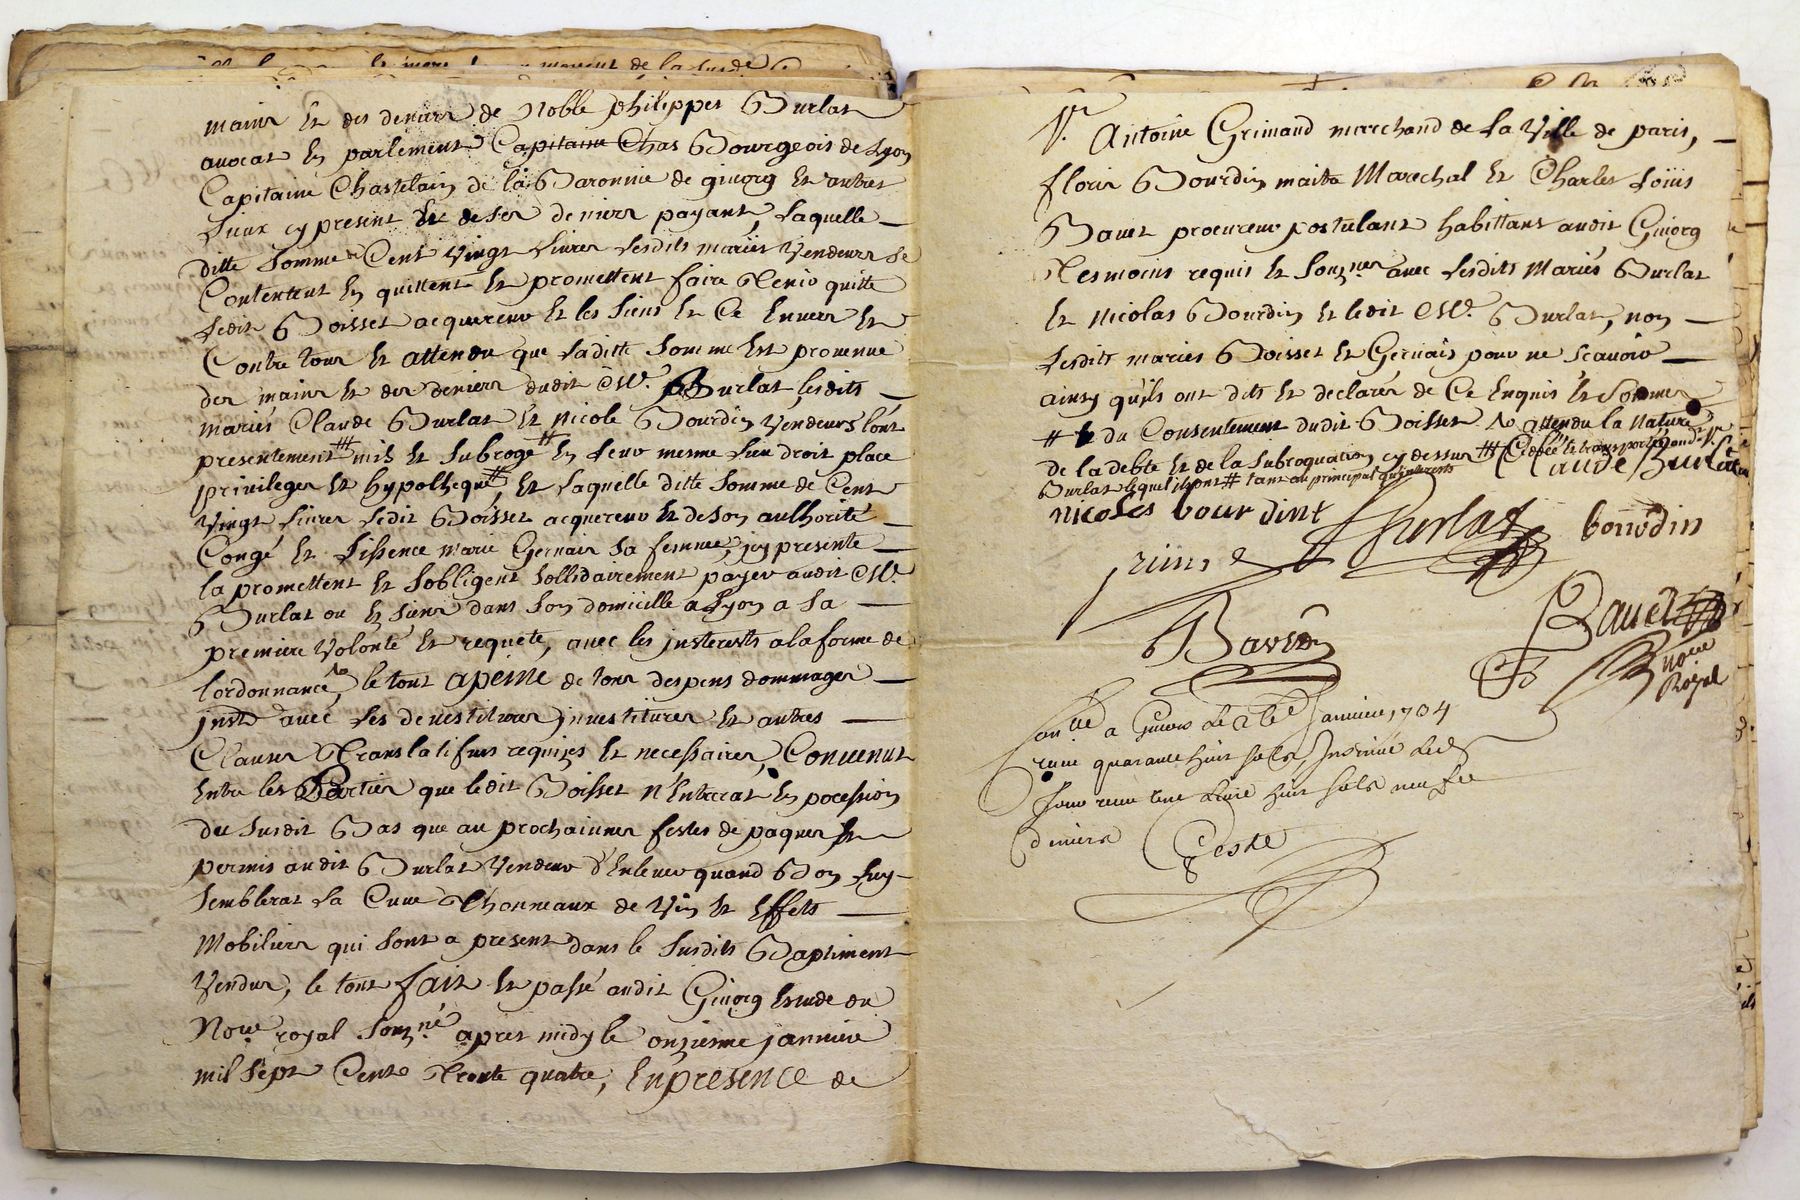 mains Et des deniers de Noble philippes Burlat
avocat En parlement Capitaine Chas Bourgeois de Lyon
Capitaine Chastelain de la Baronnie de givorg Et autres
Lieux cy present Et de ses deniers payant, Laquelle
ditte Somme de Cent Vingt Livres Lesdits mariés Vendeurs Se
Contentent En quittent Et promettent faire Tenir quitte
Ledit Boisset acquereur Et les Siens Et Ce Envers Et
Contre tous Et attendu que Laditte Somme Est provenue
des mains Et des deniers dudit Mr. Burlat, Lesdits
mariés Claude Burlat Et Nicole Bourdin Vendeurs L'ont
presentement ## mis Et Subrogé # En Leur mesme Lieu droit place
privileges Et hypotheque #, Et Laquelle ditte Somme de Cent
Vingt Livres Ledit Boisset acquereur Et de Son authorité
Congé Et Lissence Marie Gervais Sa femme, icy presente
la promettent Et Sobligent Sollidairement payer audit Mr.
Burlat ou Es Siens dans Son domicille a Lyon a Sa
premiere Volonté Et requete, avec les jnterests a la forme de
lordonnance, le tout apeine de tous despens dommages
jnsts avec Les devestitures jnvestitures Et autres
Clauses Translatifves requises Et necessaires, Convenut
Entre les Parties que ledit Boisset n'Entrerat En pocession
du Susdit Bas que au prochaines festes de paques Et
permis audit Burlat Vendeur d'Enlever quand Bon Luy
Semblerat La Cuve Thonneaux de Vin Et Effets
Mobiliers qui Sont a present dans le Susdits Baptiment
Vendus, le tout fait Et passé audit Givorg Estude du
Nore. royal Souzné. apres midy le onzieme janvier
mil Sept Cents Trente quatre, En presence de
Sr. Antoine Grimaud marchand de La Ville de paris,
floris Bourdin maitre Marechal Et Charles Loüis
Bavet procureur postulant habittans audit Givorg
Tesmoins requis Et Souznes avec Lesdits Mariés Burlat
Et Nicolas Bourdin Et ledit Mr. Burlat, non
Lesdits mariés Boisset Et Gervais pour ne Scavoir
ainsy qu'ils ont dits Et declarés de Ce Enquis Et Sommes
# Et du Consentement dudit Boisset No attendu la Nature
de la debte Et de la Subrogation cy dessus ## Cedée Et transporté audt Sr
Burlat lequel ils ont # tant au principal qu'interests
Claude Burlat
nicoles bourdint
Burlat
bourdin
Bavet
nore
Royal
Conlle a Givors Le 21e Janvier 1734
receu quarante huit sols, Insinué Ledt
Jour receu une Livre huit sols neuf
deniers
Geste